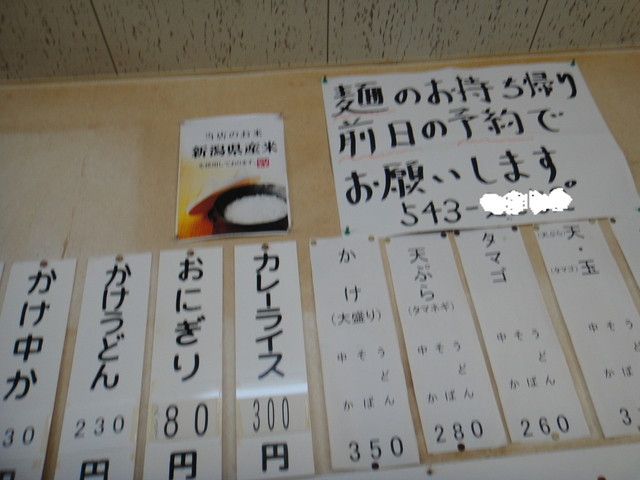 麺のお持ち帰り
前日の予約で
お願いします。
543-
当店のお米
新潟県産米
を使用しております
天・玉
(天ぷら)
(タマゴ)
中 そ う
ど
か ば ん
3
タマゴ
中 そ う
ど
か ば ん
260
天ぷら
(タマネギ)
中 そ う
ど
か ば ん
280
かけ
(大盛り)
中 そ う
ど
か ば ん
350
カレーライス
300
円
おにぎり
80
円
かけうどん
230
円
かけ中か
30
円